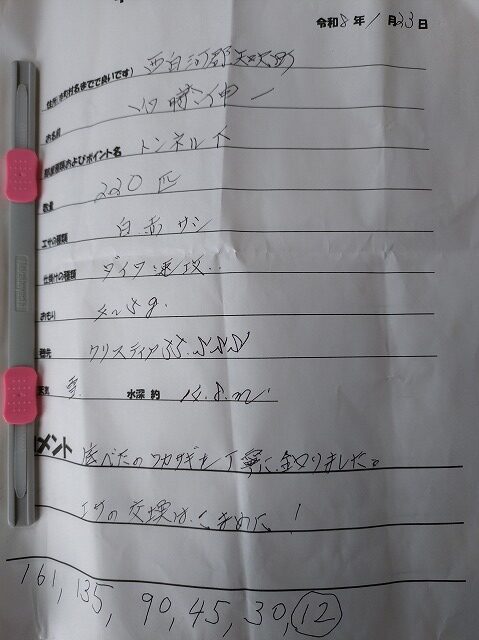 令和8年1月23日
住所(市町村名までで良いです) 西白河郡矢吹町
お名前
部屋種類およびポイント名 トンネル下
数量 220匹
エサの種類 白赤サシ
仕掛けの種類 ダイワ 速攻..
おもり 5g.
穂先 クリスティア 35. SSS
天気 雪 水深 約 14.8.m
コメント 底べたのワカサギを丁寧に釣りました。
エサの交換はこまめに!
161, 135, 90, 45, 30, 12